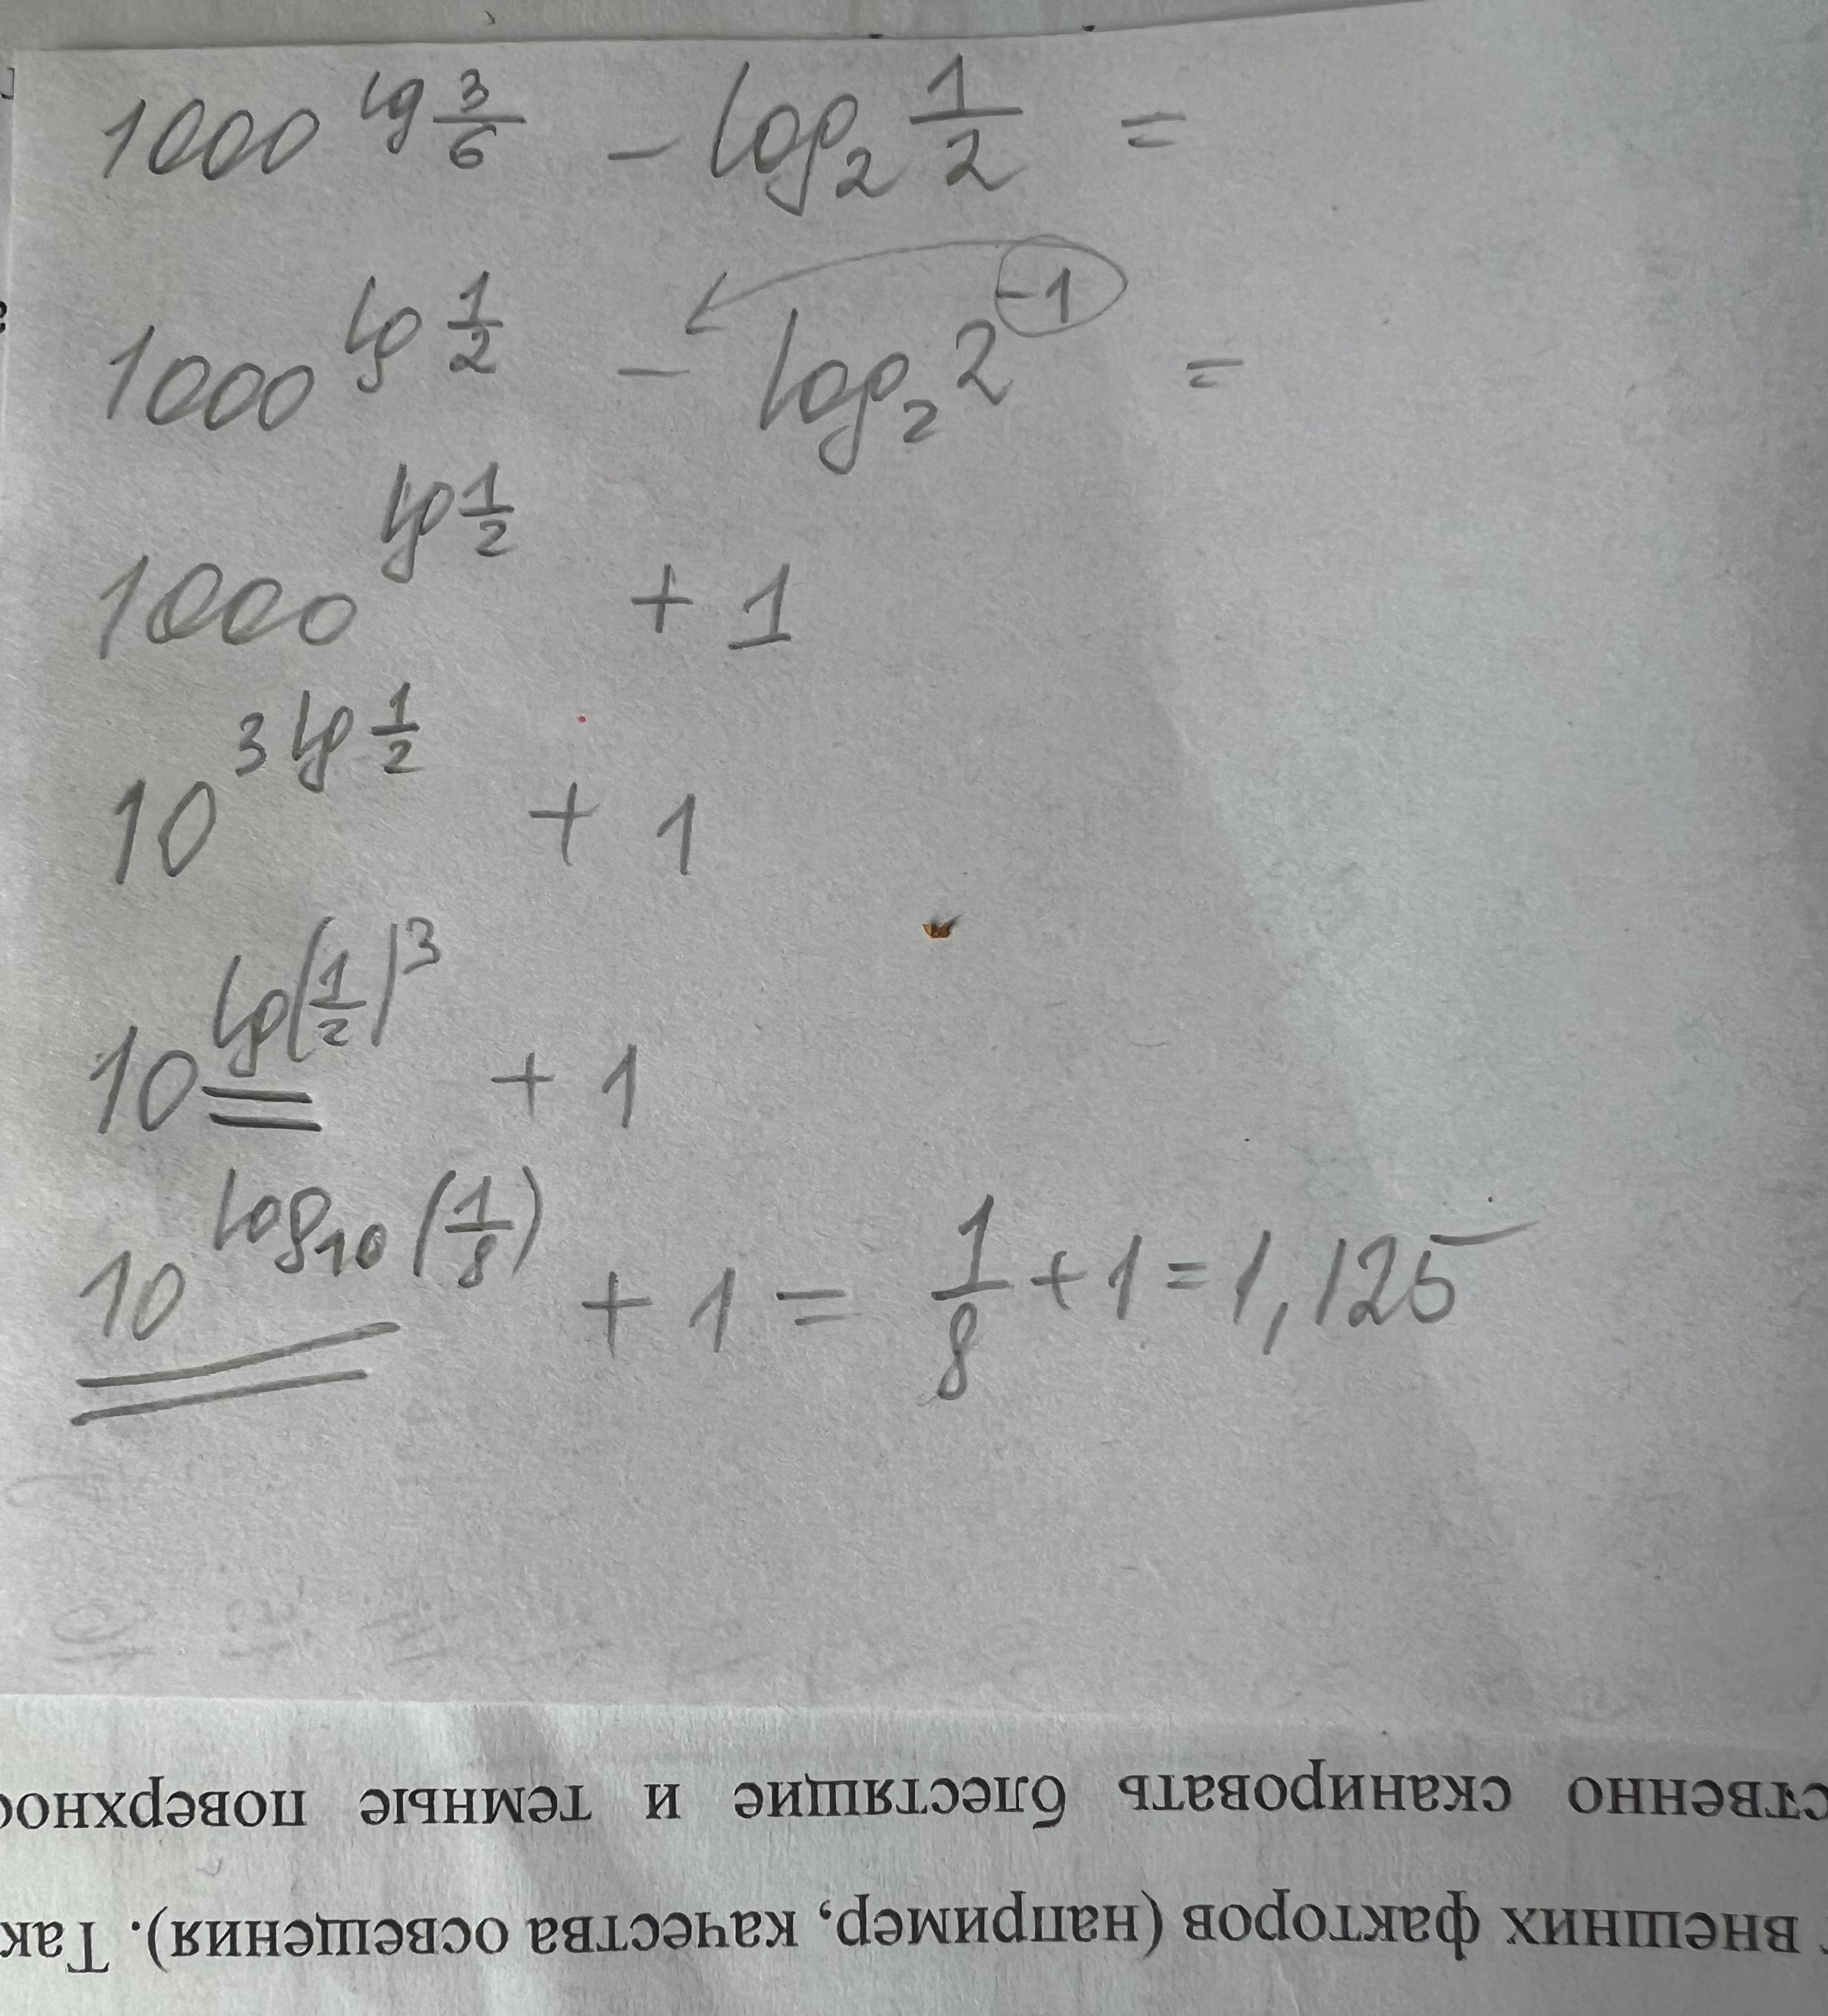 1000^{lg \frac{3}{6}} - log_2 \frac{1}{2} =
1000^{lg \frac{1}{2}} - log_2 2^{-1} =
1000^{lg \frac{1}{2}} + 1
10^{3 lg \frac{1}{2}} + 1
10^{lg (\frac{1}{2})^3} + 1
10^{log_{10} (\frac{1}{8})} + 1 = \frac{1}{8} + 1 = 1,125
внешних факторов (например, качества освещения). Так
ственно сканировать блестящие и темные поверхнос